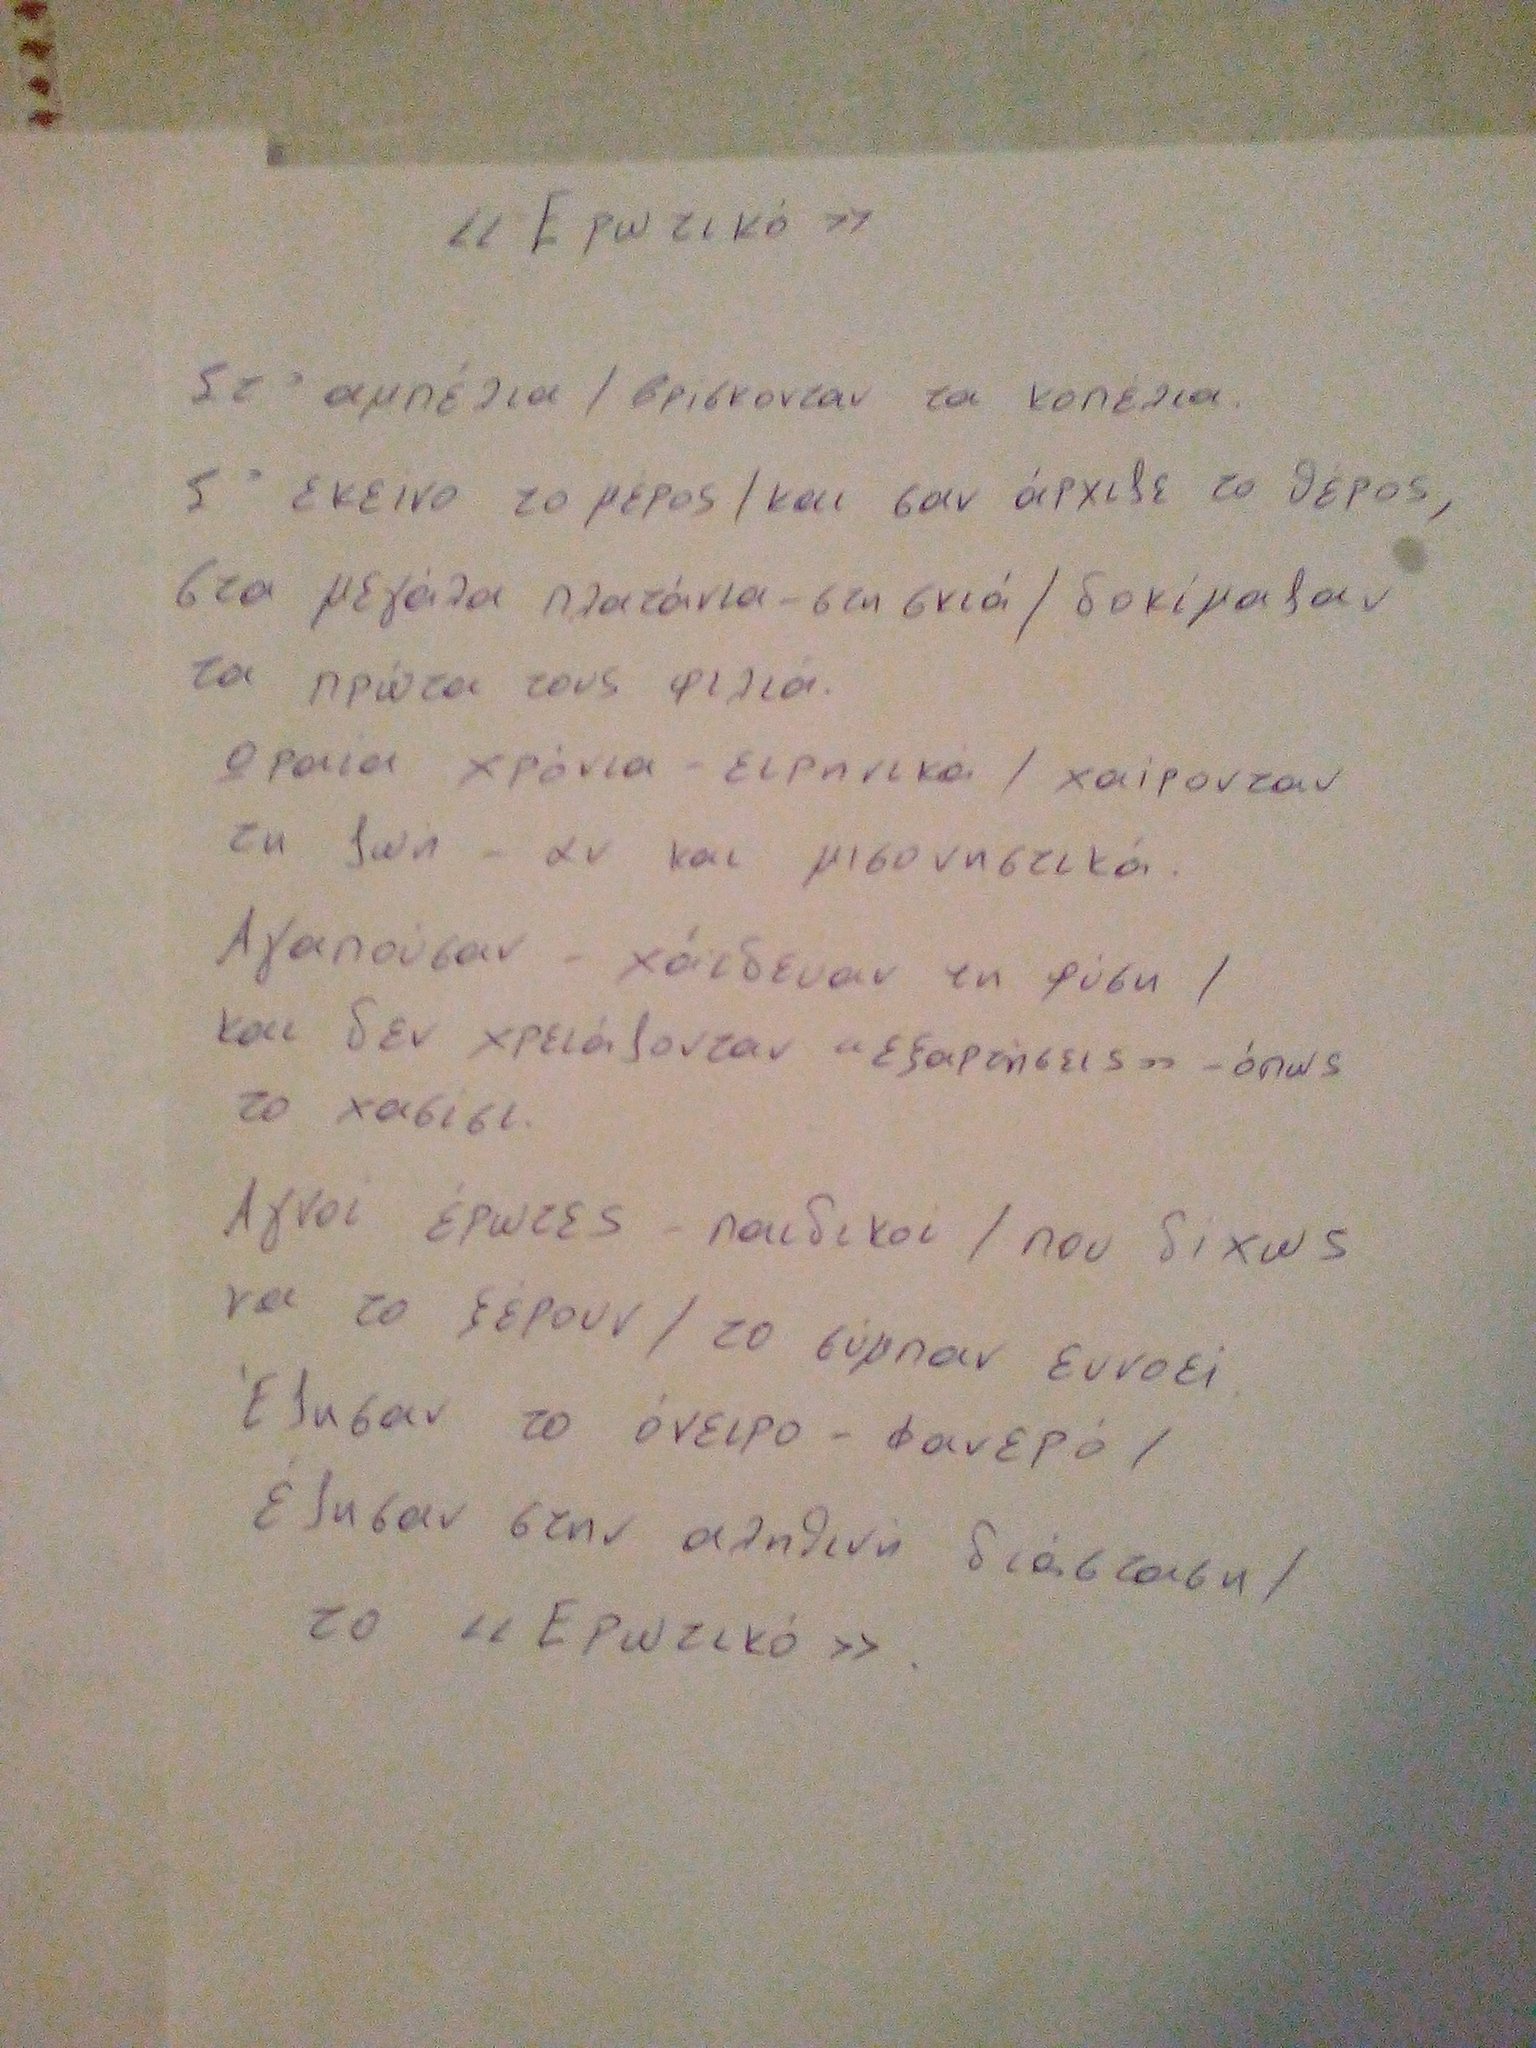 «Ερωτικό»
Στ' αμπέλια / βρίσκονταν τα κοπέλια.
Σ' εκείνο το μέρος / και σαν άρχιζε το θέρος,
στα μεγάλα πλατάνια - στη σκιά / δοκίμαζαν
τα πρώτα τους φιλιά.
Ωραία χρόνια - ειρηνικά / χαίρονταν
τη ζωή - αν και μισονηστικά.
Αγαπούσαν - χάιδευαν τη φύση /
και δεν χρειάζονταν «εξαρτήσεις» - όπως
το χασίσι.
Αγνοί έρωτες - παιδικοί / που δίχως
να το ξέρουν / το σύμπαν ευνοεί.
Έζησαν το όνειρο - φανερό /
έζησαν στην αληθινή διάσταση /
το «Ερωτικό».